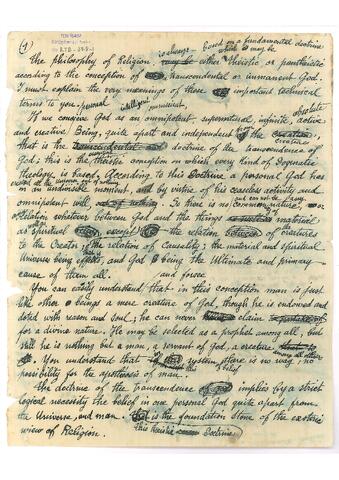 (1)
is always based on a fundamental doctrine
which may be
The philosophy of Religion either theistic or pantheistic
according to the conception of transcendental or immanent God.
I must explain the very meanings of these important technical
terms to you. personal intelligent omniscient,
If we conceive God as an omnipotent supernatural, infinite, absolute active
and creative Being, quite apart and independent from creatures
that is the doctrine of the transcendence of
God; this is the theistic conception on which every kind of Dogmatic
Theology is based. According to this Doctrine a personal God has
created all the universe
in an moment, and by virtue of his ceaseless activity and
omnipotent will, So there is no common nature, and can not be any
relation whatever between God and the things material
as spiritual except the relation of creatures
to the Creator the relation of Causality; the material and spiritual
Universe being effects, and God being the Ultimate and primary
cause of them all. and forces
You can easily understand that in this conception man is just
like other beings a mere creature of God, though he is endowed and
doted with reason and soul; he can never claim
for a divine nature. He may be selected as a prophet among all, but
still he is nothing but a man, a servant of God, a creature among all others
You understand that in this system of belief there is no way, no
possibility for the apotheosis of man.
The doctrine of the transcendence implies by a strict
logical necessity the belief in one personal God quite apart from
the Universe, and man. is the foundation stone of the exoteric
view of Religion. This theistic Doctrine